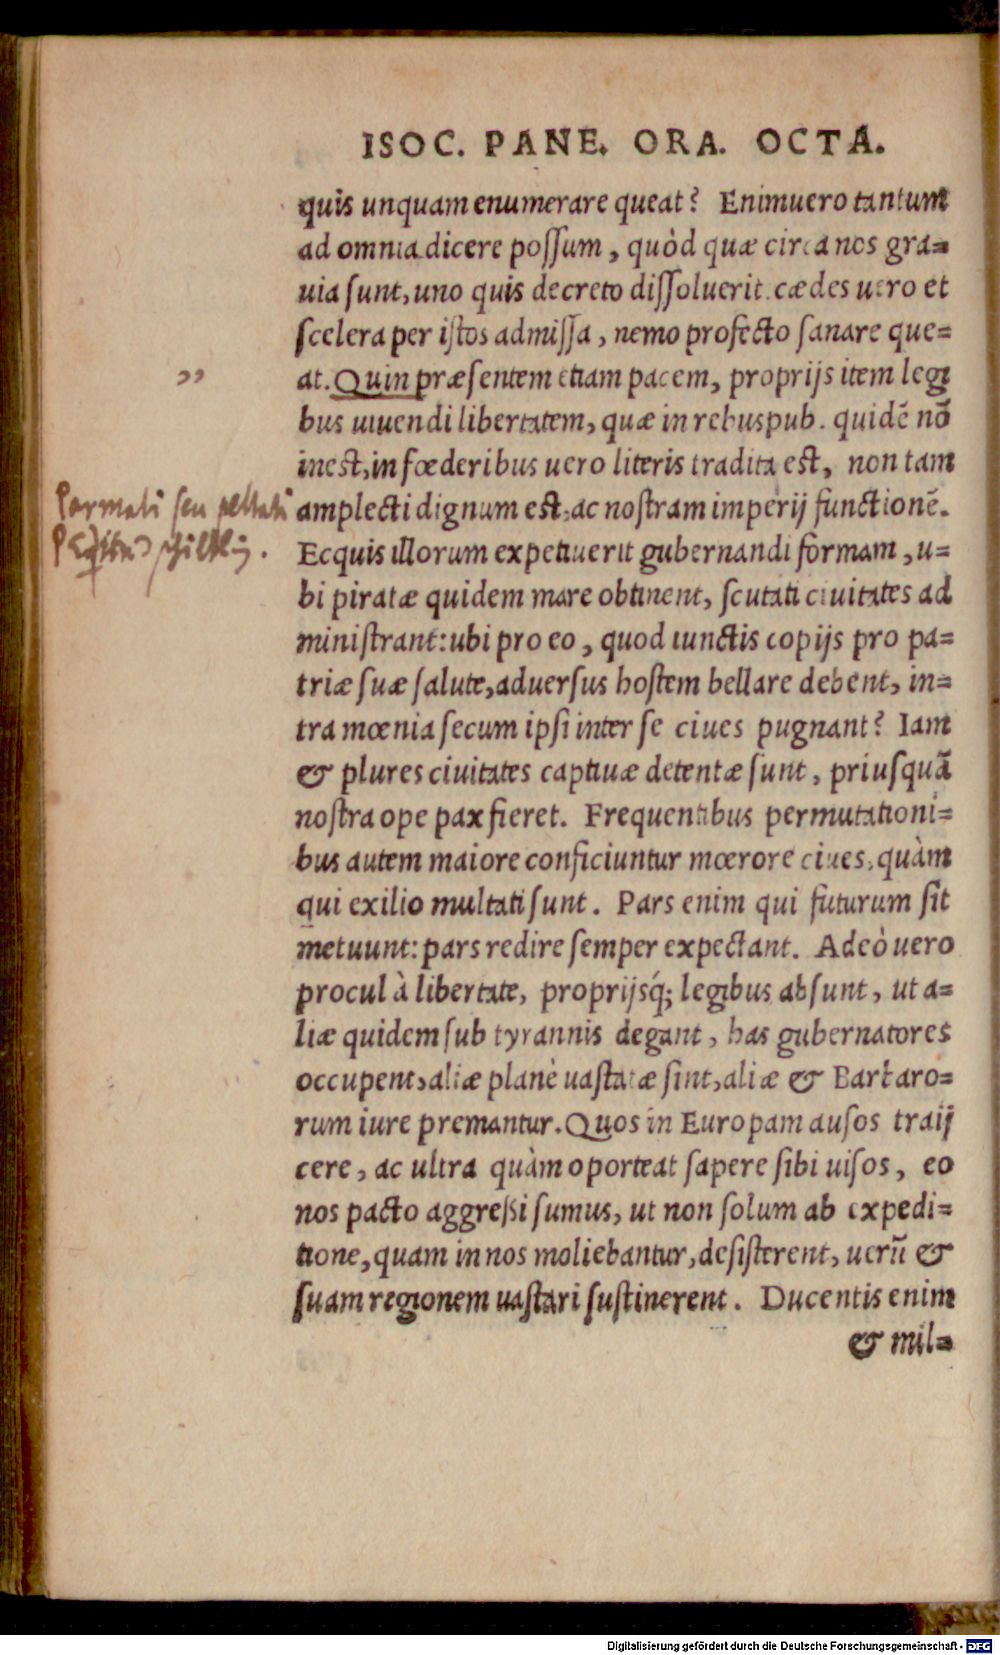 ISOC. PANE. ORA. OCTA.
quis unquam enumerare queat? Enimuero tantum
ad omnia dicere possum, quòd quæ circa nos gra=
uia sunt, uno quis decreto dissoluerit. cædes uero et
scelera per istos admissa, nemo profecto sanare que=
at. Quin præsentem etiam pacem, proprijs item legi
bus uiuendi libertatem, quæ in rebuspub. quidē nō
inest, in fœderibus uero literis tradita est, non tam
amplecti dignum est, ac nostram imperij functionē.
Ecquis illorum expetiuerit gubernandi formam, u=
bi piratæ quidem mare obtinent, scutati ciuitates ad
ministrant: ubi pro eo, quod iunctis copijs pro pa=
triæ suæ salute, aduersus hostem bellare debent, in=
tra mœnia secum ipsi inter se ciues pugnant? Iam
& plures ciuitates captiuæ detentæ sunt, priusquā
nostra ope pax fieret. Frequentibus permutationi=
bus autem maiore conficiuntur mœrore ciues, quàm
qui exilio multati sunt. Pars enim qui futurum sit
metuunt: pars redire semper expectant. Adeò uero
procul à libertate, proprijsq́; legibus absunt, ut a=
liæ quidem sub tyrannis degant, has gubernatores
occupent, aliæ planè uastatæ sint, aliæ & Barbaro=
rum iure premantur. Quos in Europam ausos traij
cere, ac ultra quàm oporteat sapere sibi uisos, eo
nos pacto aggreßi sumus, ut non solum ab expedi=
tione, quam in nos moliebantur, desisterent, uerū &
suam regionem uastari sustinerent. Ducentis enim
& mil=
”
Parmati seu peltati
Digitalisierung gefördert durch die Deutsche Forschungsgemeinschaft - DFG